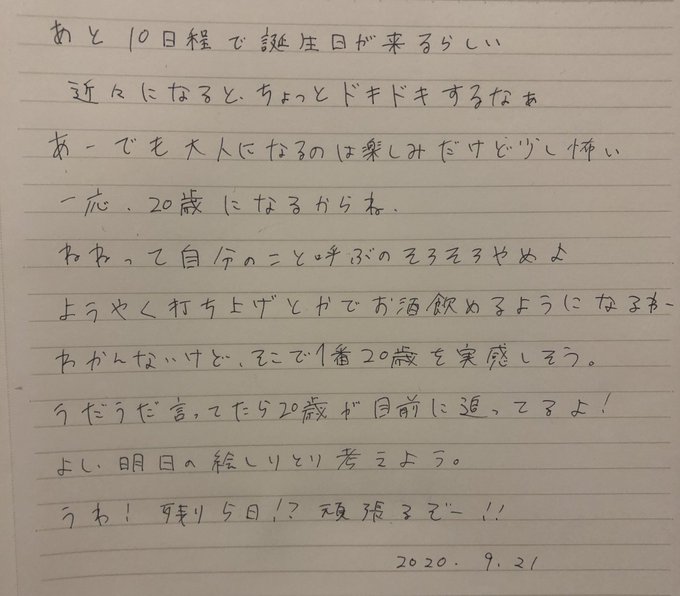 あと10日程で誕生日が来るらしい
近々になると、ちょっとドキドキするなぁ
あーでも大人になるのは楽しみだけど少し怖い
一応、20歳になるからね、
ねねって自分のこと呼ぶのそろそろやめよ
ようやく打ち上げとかでお酒飲めるようになるわー
わかんないけど、そこで1番20歳を実感しそう。
うだうだ言ってたら20歳が目前に迫ってるよ!
よし、明日の絵しりとり考えよう。
うわ!残り5日!?頑張るぞー!!
2020.9.21